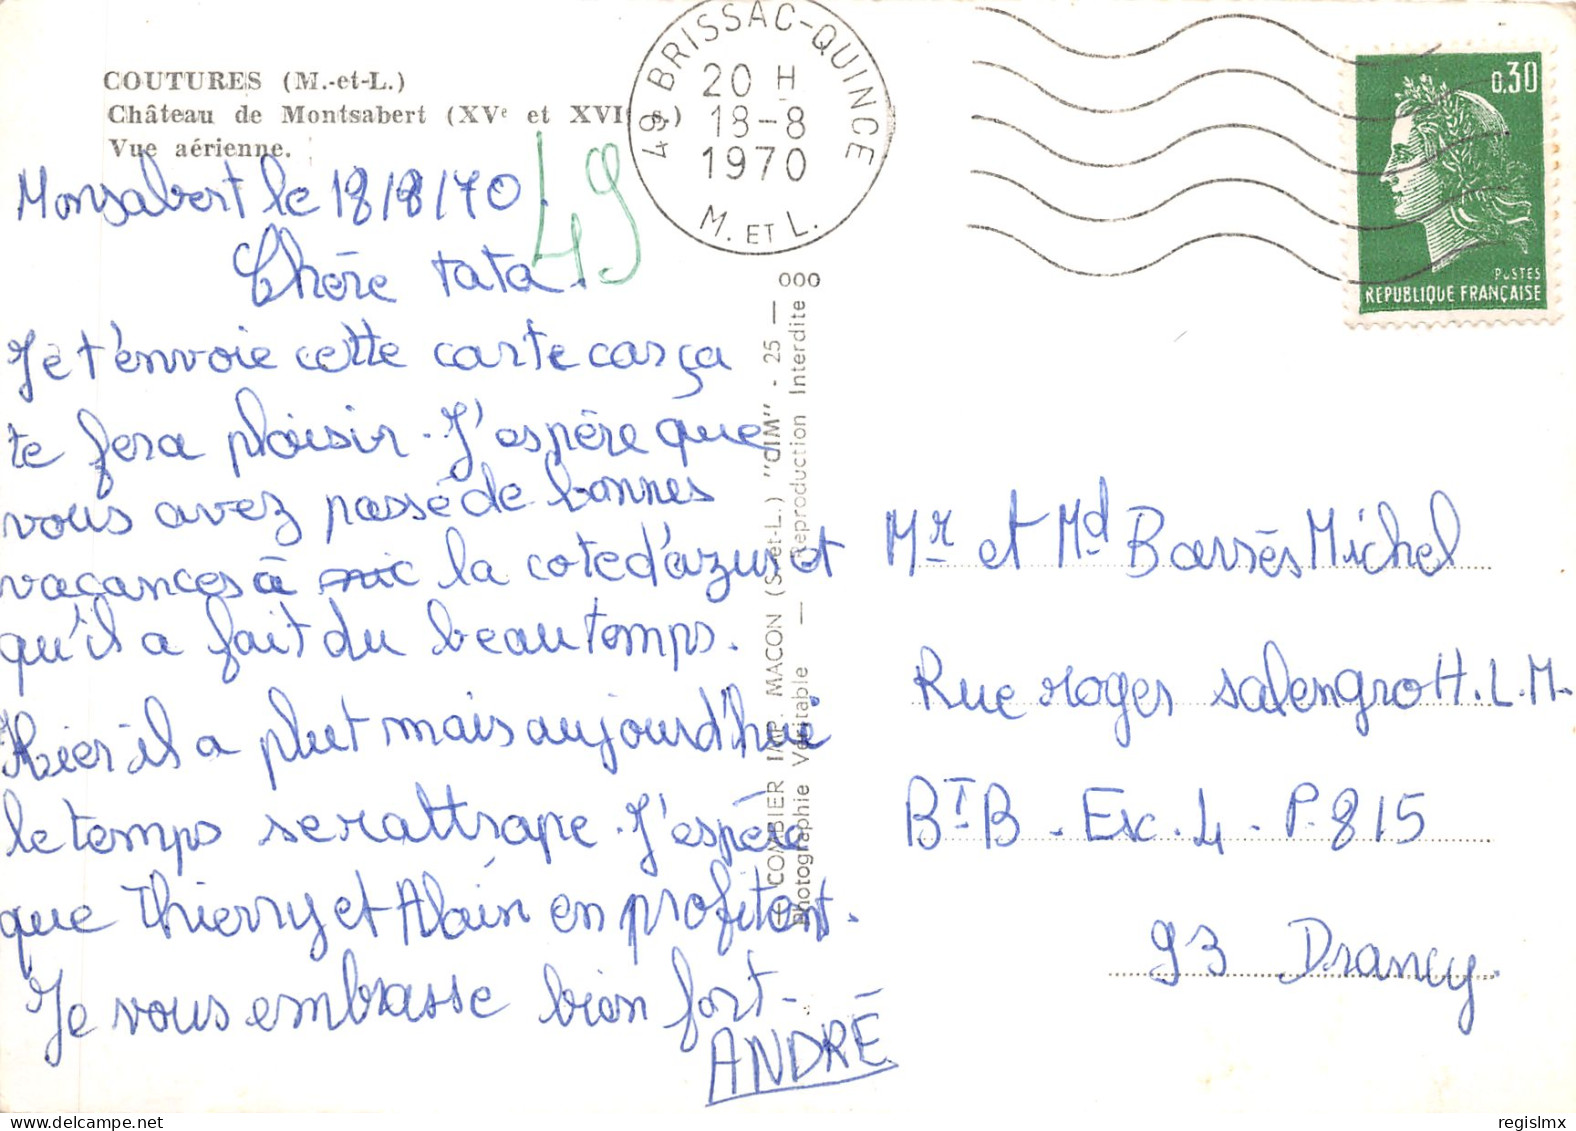 COUTURES (M.-et-L.)
Château de Montsabert (XVe et XVIe s.)
Vue aérienne.
49 BRISSAC-QUINCE
20 H
18-8
1970
M. ET L.
0,30
POSTES
REPUBLIQUE FRANÇAISE
49
Monsabert le 18/8/70
Chère tata.
Je t'envoie cette carte car ça
te fera plaisir. J'espère que
vous avez passé de bonnes
vacances à la cote d'azur et
qu'il a fait du beau temps.
Hier il a plut mais aujourd'hui
le temps se rattrape. J'espère
que Thierry et Alain en profitent.
Je vous embrasse bien fort-
ANDRÉ
COMBIER IMP. MACON (S.-et-L.) "CIM" - 25 - 000
Photographie Véritable — Reproduction Interdite
Mr et Md Barrès Michel
Rue roger salengro H.L.M.
BT B - Esc. 4 - P. 815
93 Drancy.
regislmx